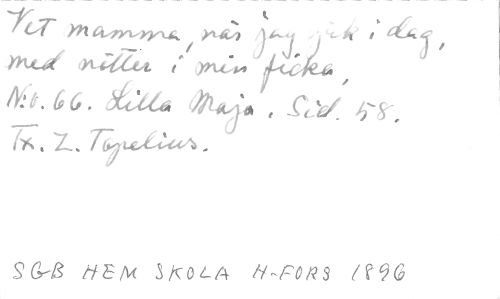 Vet mamma, när jag gick i dag,
med nötter i min ficka,
N:o. 66. Lilla Maja. Sid. 58.
Tx. Z. Topelius.
SGB HEM SKOLA H-FORS 1896